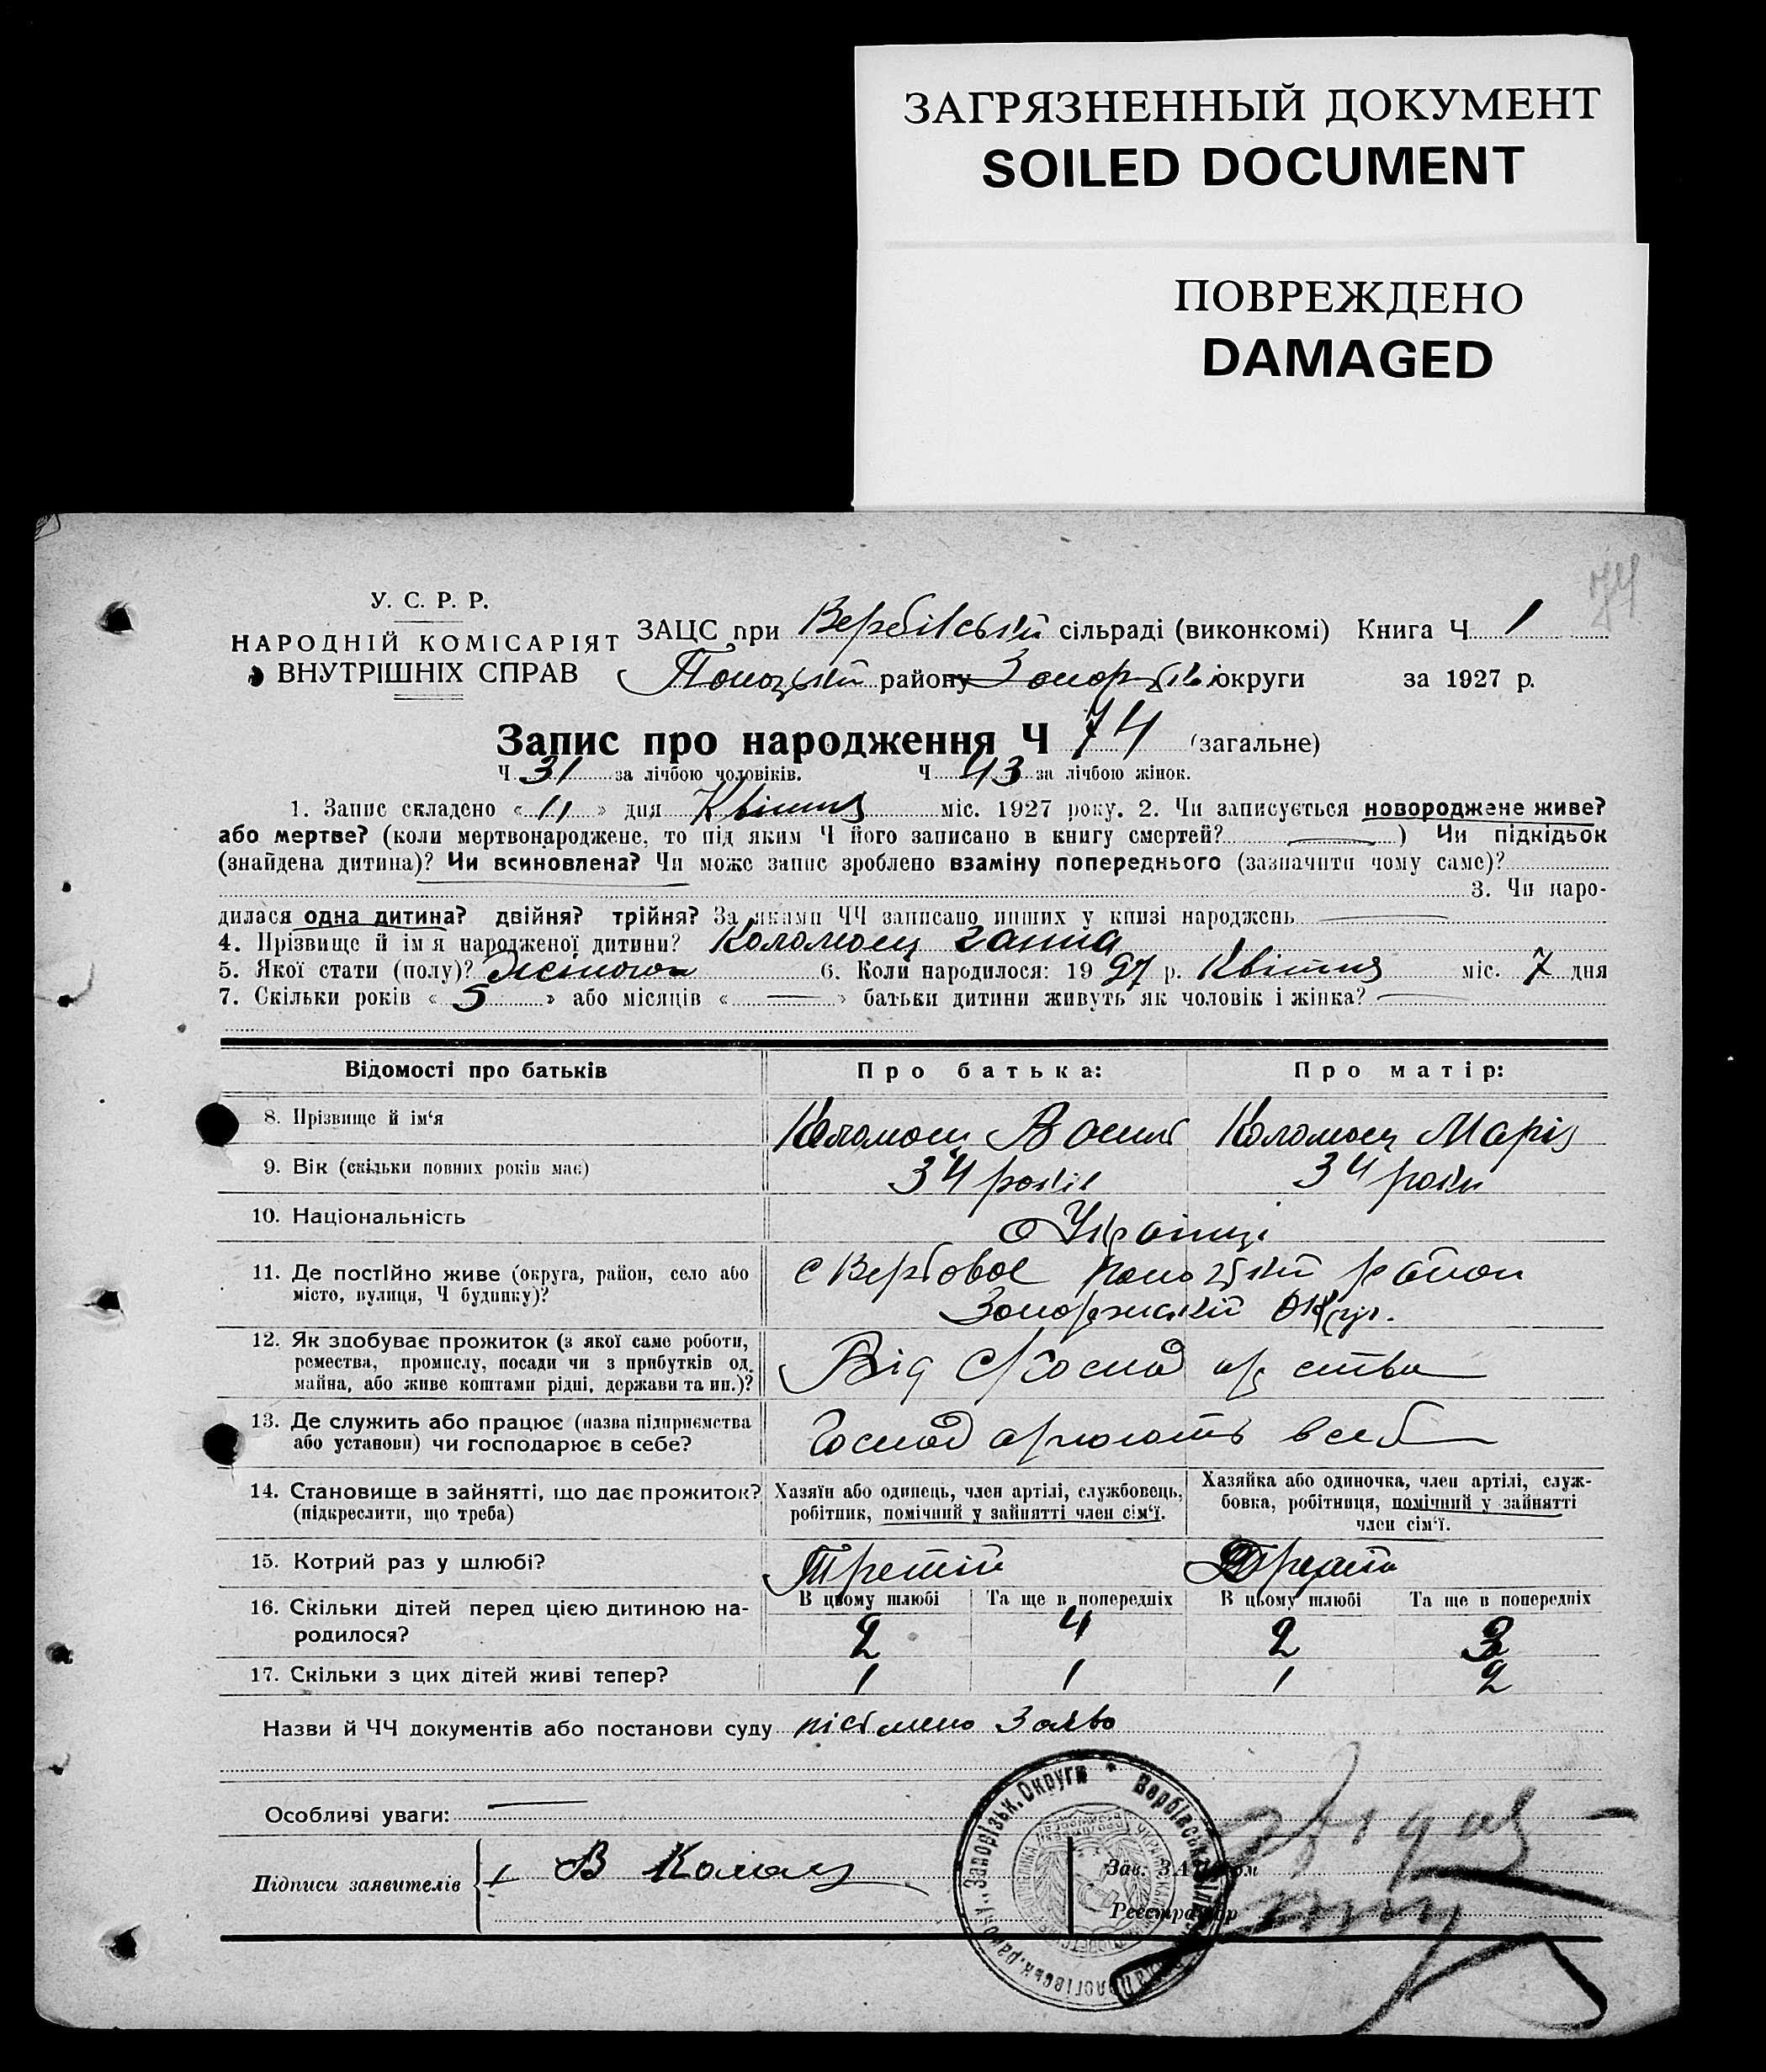 ЗАГРЯЗНЕННЫЙ ДОКУМЕНТ
SOILED DOCUMENT
ПОВРЕЖДЕНО
DAMAGED
74
У. С. Р. Р.
НАРОДНІЙ КОМІСАРІЯТ
ВНУТРІШНІХ СПРАВ
ЗАЦС при Вербівській сільраді (виконкомі) Книга Ч 1
району округи за 1927 р.
Запис про народження Ч 74 (загальне)
Ч 31 за лічбою чоловіків. Ч 43 за лічбою жінок.
1. Запис складено « 11 » дня Квітня міс. 1927 року. 2. Чи записується новороджене живе?
або мертве? (коли мертвонароджене, то під яким Ч його записано в книгу смертей? ) Чи підкідьок
(знайдена дитина)? Чи всиновлена? Чи може запис зроблено взаміну попереднього (зазначити чому саме)?
3. Чи наро-
дилася одна дитина? двійня? трійня? За якими ЧЧ записано инших у книзі народжень
4. Прізвище й ім я народженої дитини? Коломоєц Ганна
5. Якої стати (полу)? Жіночой 6. Коли народилося: 19 27 р. Квітня міс. 7 дня
7. Скільки років « 5 » або місяців « — » батьки дитини живуть як чоловік і жінка?
Відомості про батьків Про батька: Про матір:
8. Прізвище й ім‘я Коломоєц Василь Коломоєц Марія
9. Вік (скільки повних років має) 34 років 34 роки
10. Національність Українці
11. Де постійно живе (округа, район, село або
місто, вулиця, Ч будинку)?
с Вербовое район
Запоржській Округ.
12. Як здобуває прожиток (з якої саме роботи,
ремества, промислу, посади чи з прибутків од
майна, або живе коштами рідні, держави та ин.)?
Від С/Господарства
13. Де служить або працює (назва підприємства
або установи) чи господарює в себе?
Господарюють в себ
14. Становище в зайнятті, що дає прожиток?
(підкреслити, що треба)
Хазяїн або одинець, член артілі, службовець,
робітник, помічний у зайнятті член сім‘ї.
Хазяйка або одиночка, член артілі, служ-
бовка, робітниця, помічний у зайнятті
член сім‘ї.
15. Котрий раз у шлюбі? Третій
16. Скільки дітей перед цією дитиною на-
родилося?
В цьому шлюбі Та ще в попередніх В цьому шлюбі Та ще в попередніх
2 4 2 3
17. Скільки з цих дітей живі тепер? 1 1 1 2
Назви й ЧЧ документів або постанови суду пісьмено Заяво
Особливі уваги: —
Підписи заявителів В
Зав. ЗАЦС'ом
Реєстратор
Запорізьк. Округи * Вербівська